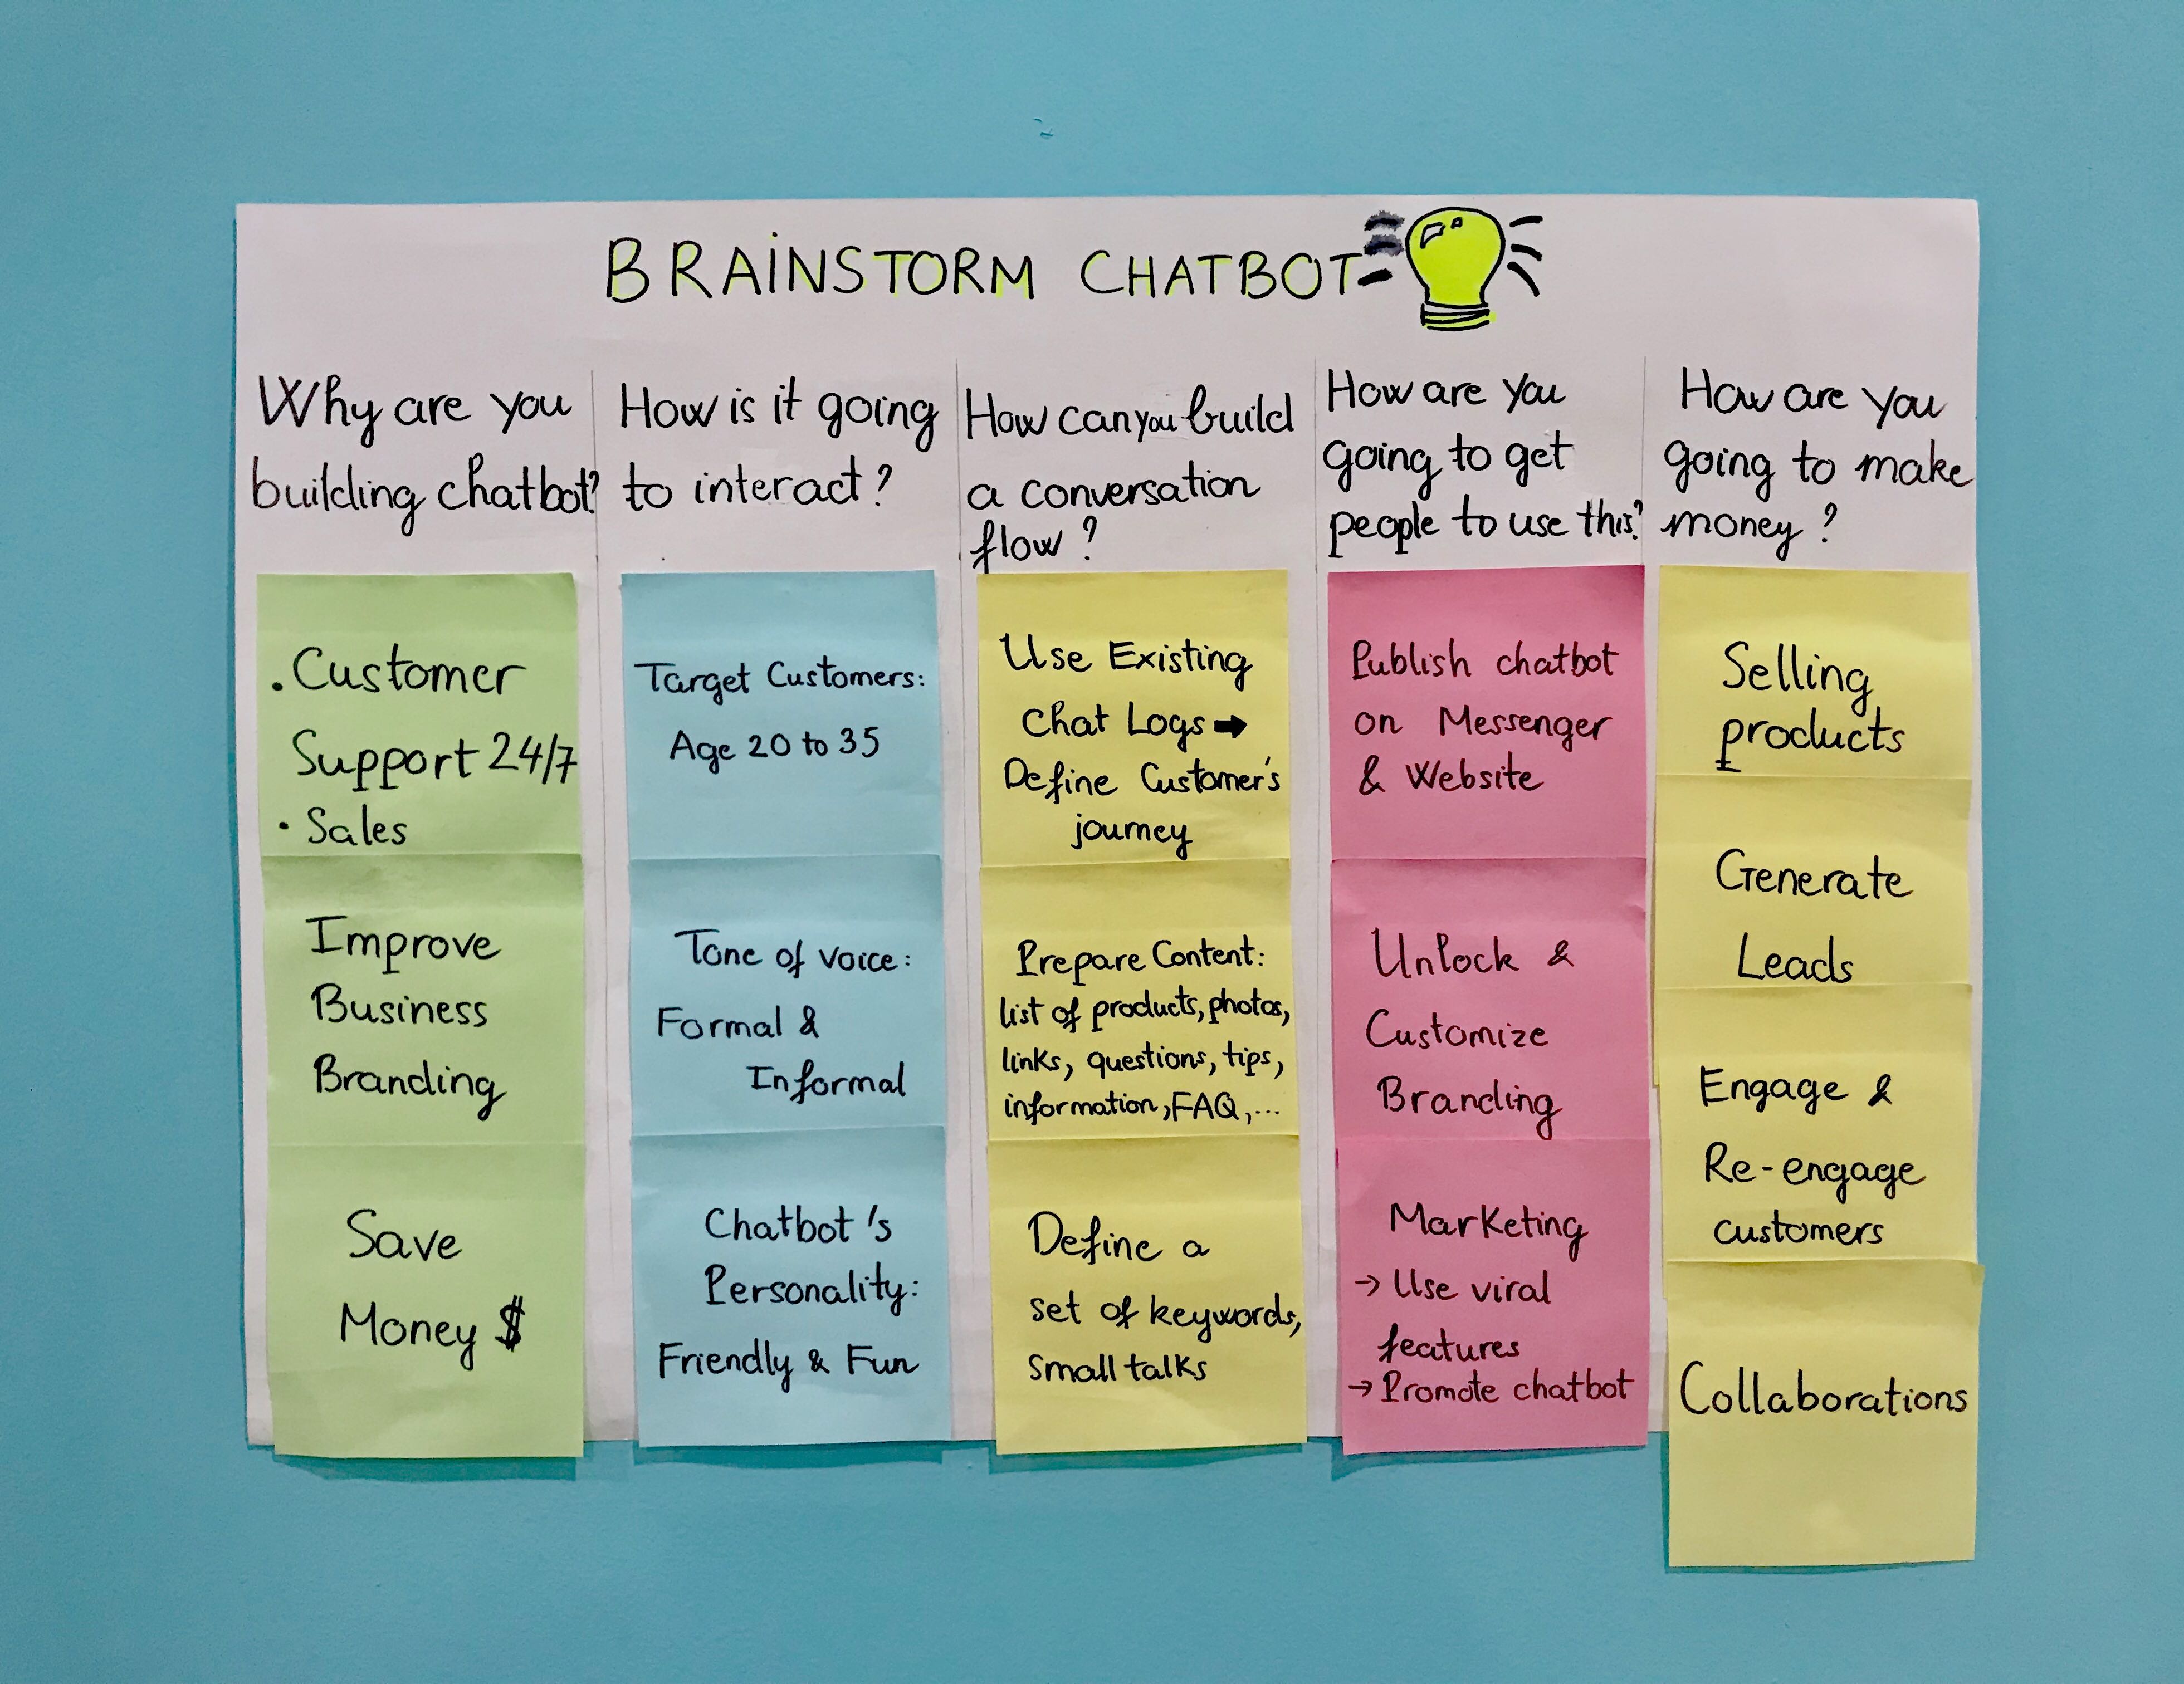 BRAINSTORM CHATBOT
Why are you
building chatbot?
. Customer
Support 24/7
• Sales
Improve
Business
Branding
Save
Money $
How is it going
to interact?
Target Customers:
Age 20 to 35
Tone of voice:
Formal &
Informal
Chatbot's
Personality:
Friendly & Fun
How can you build
a conversation
flow?
Use Existing
Chat Logs ➡
Define Customer's
journey
Prepare Content:
list of products, photos,
links, questions, tips,
information, FAQ, ...
Define a
set of keywords,
small talks
How are you
going to get
people to use this?
Publish chatbot
on Messenger
& Website
Unlock &
Customize
Branding
Marketing
→ Use viral
features
→ Promote chatbot
How are you
going to make
money?
Selling
products
Generate
Leads
Engage &
Re-engage
customers
Collaborations